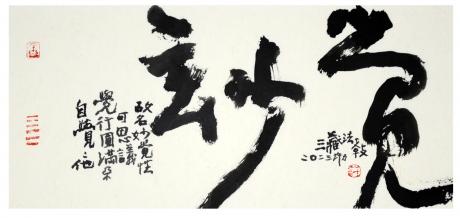 玅
覺
自覺覺他
覺行圓滿不
可思議
故名妙覺性
三藏法數
二〇二三年